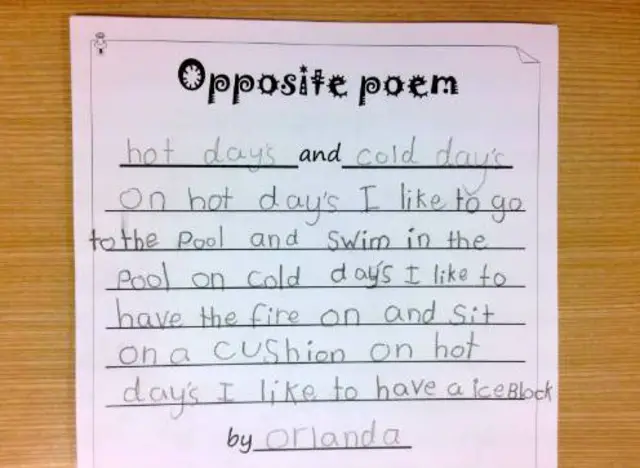 Opposite poem
hot day's and cold day's
on hot day's I like to go
to the pool and swim in the
pool on cold day's I like to
have the fire on and sit
on a cushion on hot
day's I like to have a iceBlock
by orlanda